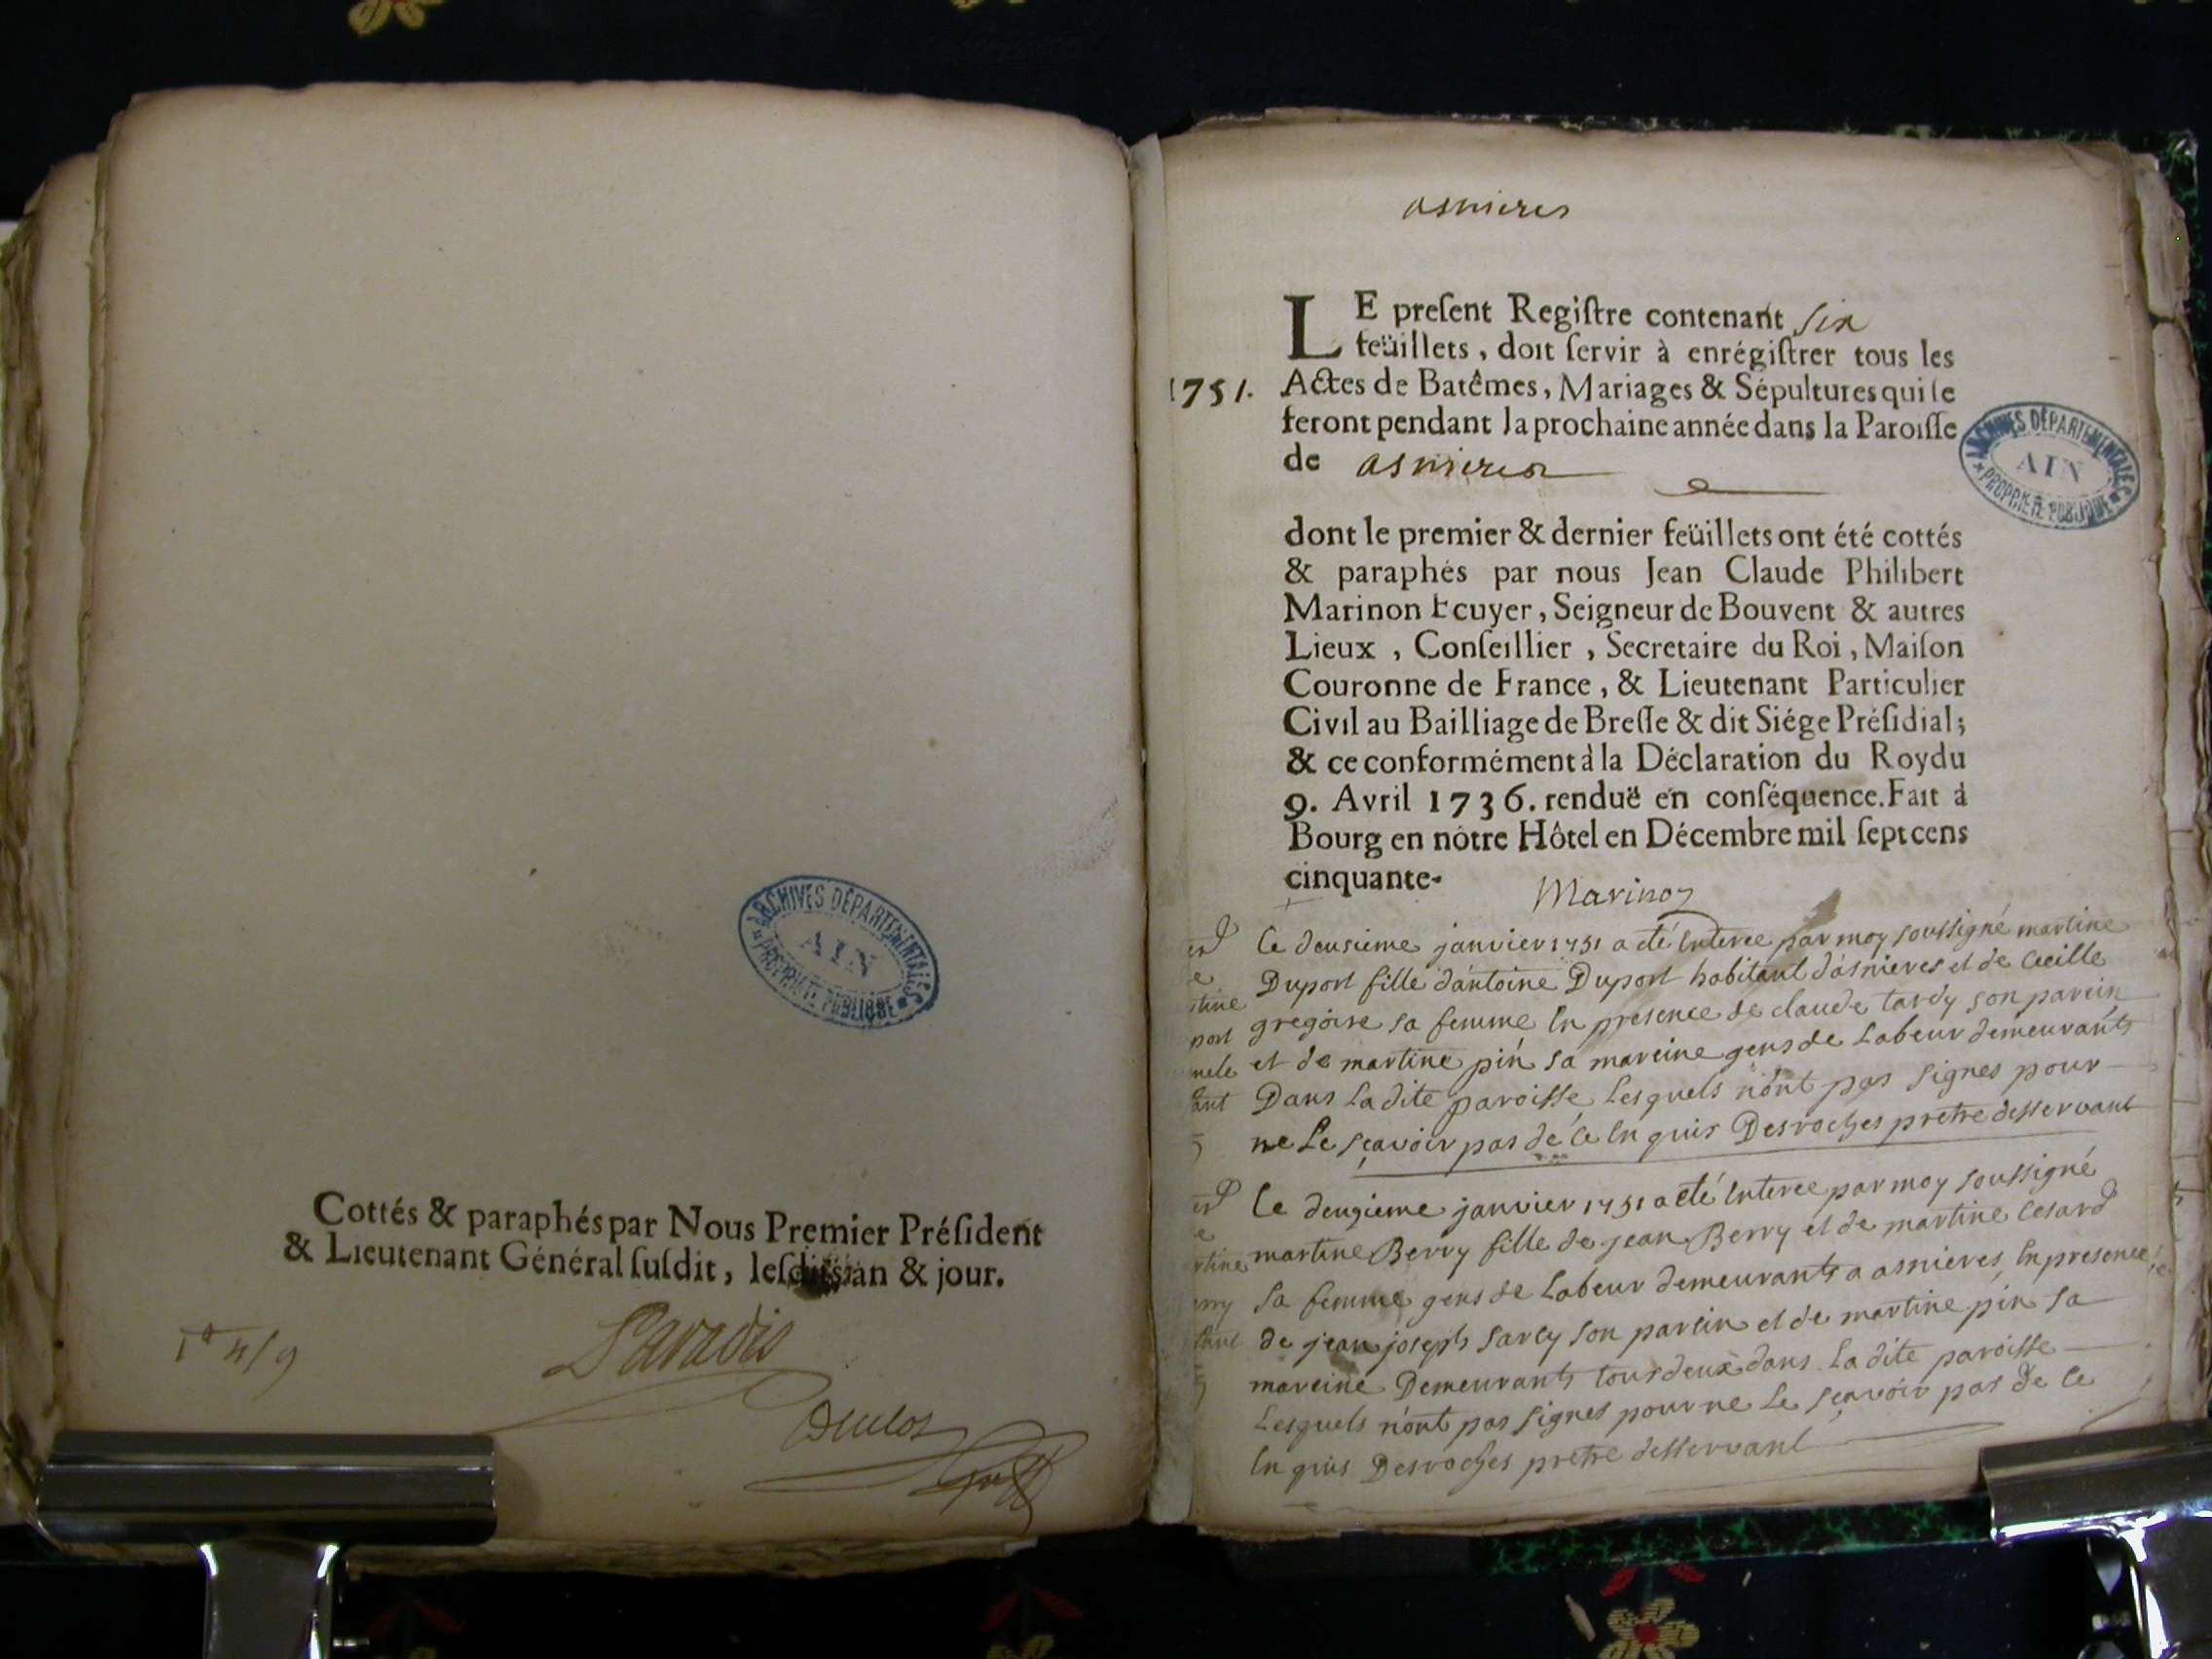 ARCHIVES DÉPARTEMENTALES
AIN
PROPRIÉTÉ PUBLIQUE
Cottés & paraphés par Nous Premier Préſident
& Lieutenant Général ſuſdit, leſdits an & jour.
Paradis
asnieres
LE preſent Regiſtre contenant six
feüillets, doit ſervir à enrégiſtrer tous les
1751. Actes de Batêmes, Mariages & Sépultures qui ſe
feront pendant la prochaine année dans la Paroiſſe
de asnieres
ARCHIVES DÉPARTEMENTALES
AIN
PROPRIÉTÉ PUBLIQUE
dont le premier & dernier feüillets ont été cottés
& paraphés par nous Jean Claude Philibert
Marinon Ecuyer, Seigneur de Bouvent & autres
Lieux, Conſeillier, Secretaire du Roi, Maiſon
Couronne de France, & Lieutenant Particulier
Civil au Bailliage de Breſſe & dit Siége Préſidial;
& ce conformément à la Déclaration du Roy du
9. Avril 1736. renduë en conſéquence. Fait à
Bourg en nôtre Hôtel en Décembre mil ſept cens
cinquante.
Marinon
Le deusieme janvier 1751 a eté Enteree par moy soussigné martine
Duport fille dántoine Duport habitant dásnieres et de Cecille
stine
gregoire sa femme En presence de claude tardy son parein
port
et de martine pin sa mareine gens de Labeur demeurants
Dans La dite paroisse Lesquels nónt pas signes pour
ne Le sçavoir pas de Ce En quis Desroches pretre desservant
Le deuzieme janvier 1751 a eté Enteree par moy soussigné
martine Berry fille de jean Berry et de martine Cesard
sa femme gens de Labeur demeurants a asnieres, En presence
de jean joseph sarcy son parein et de martine pin sa
mareine Demeurants tous deux dans La dite paroisse
Lesquels nónt pas signes pour ne Le sçavoir pas de Ce
En quis Desroches pretre desservant